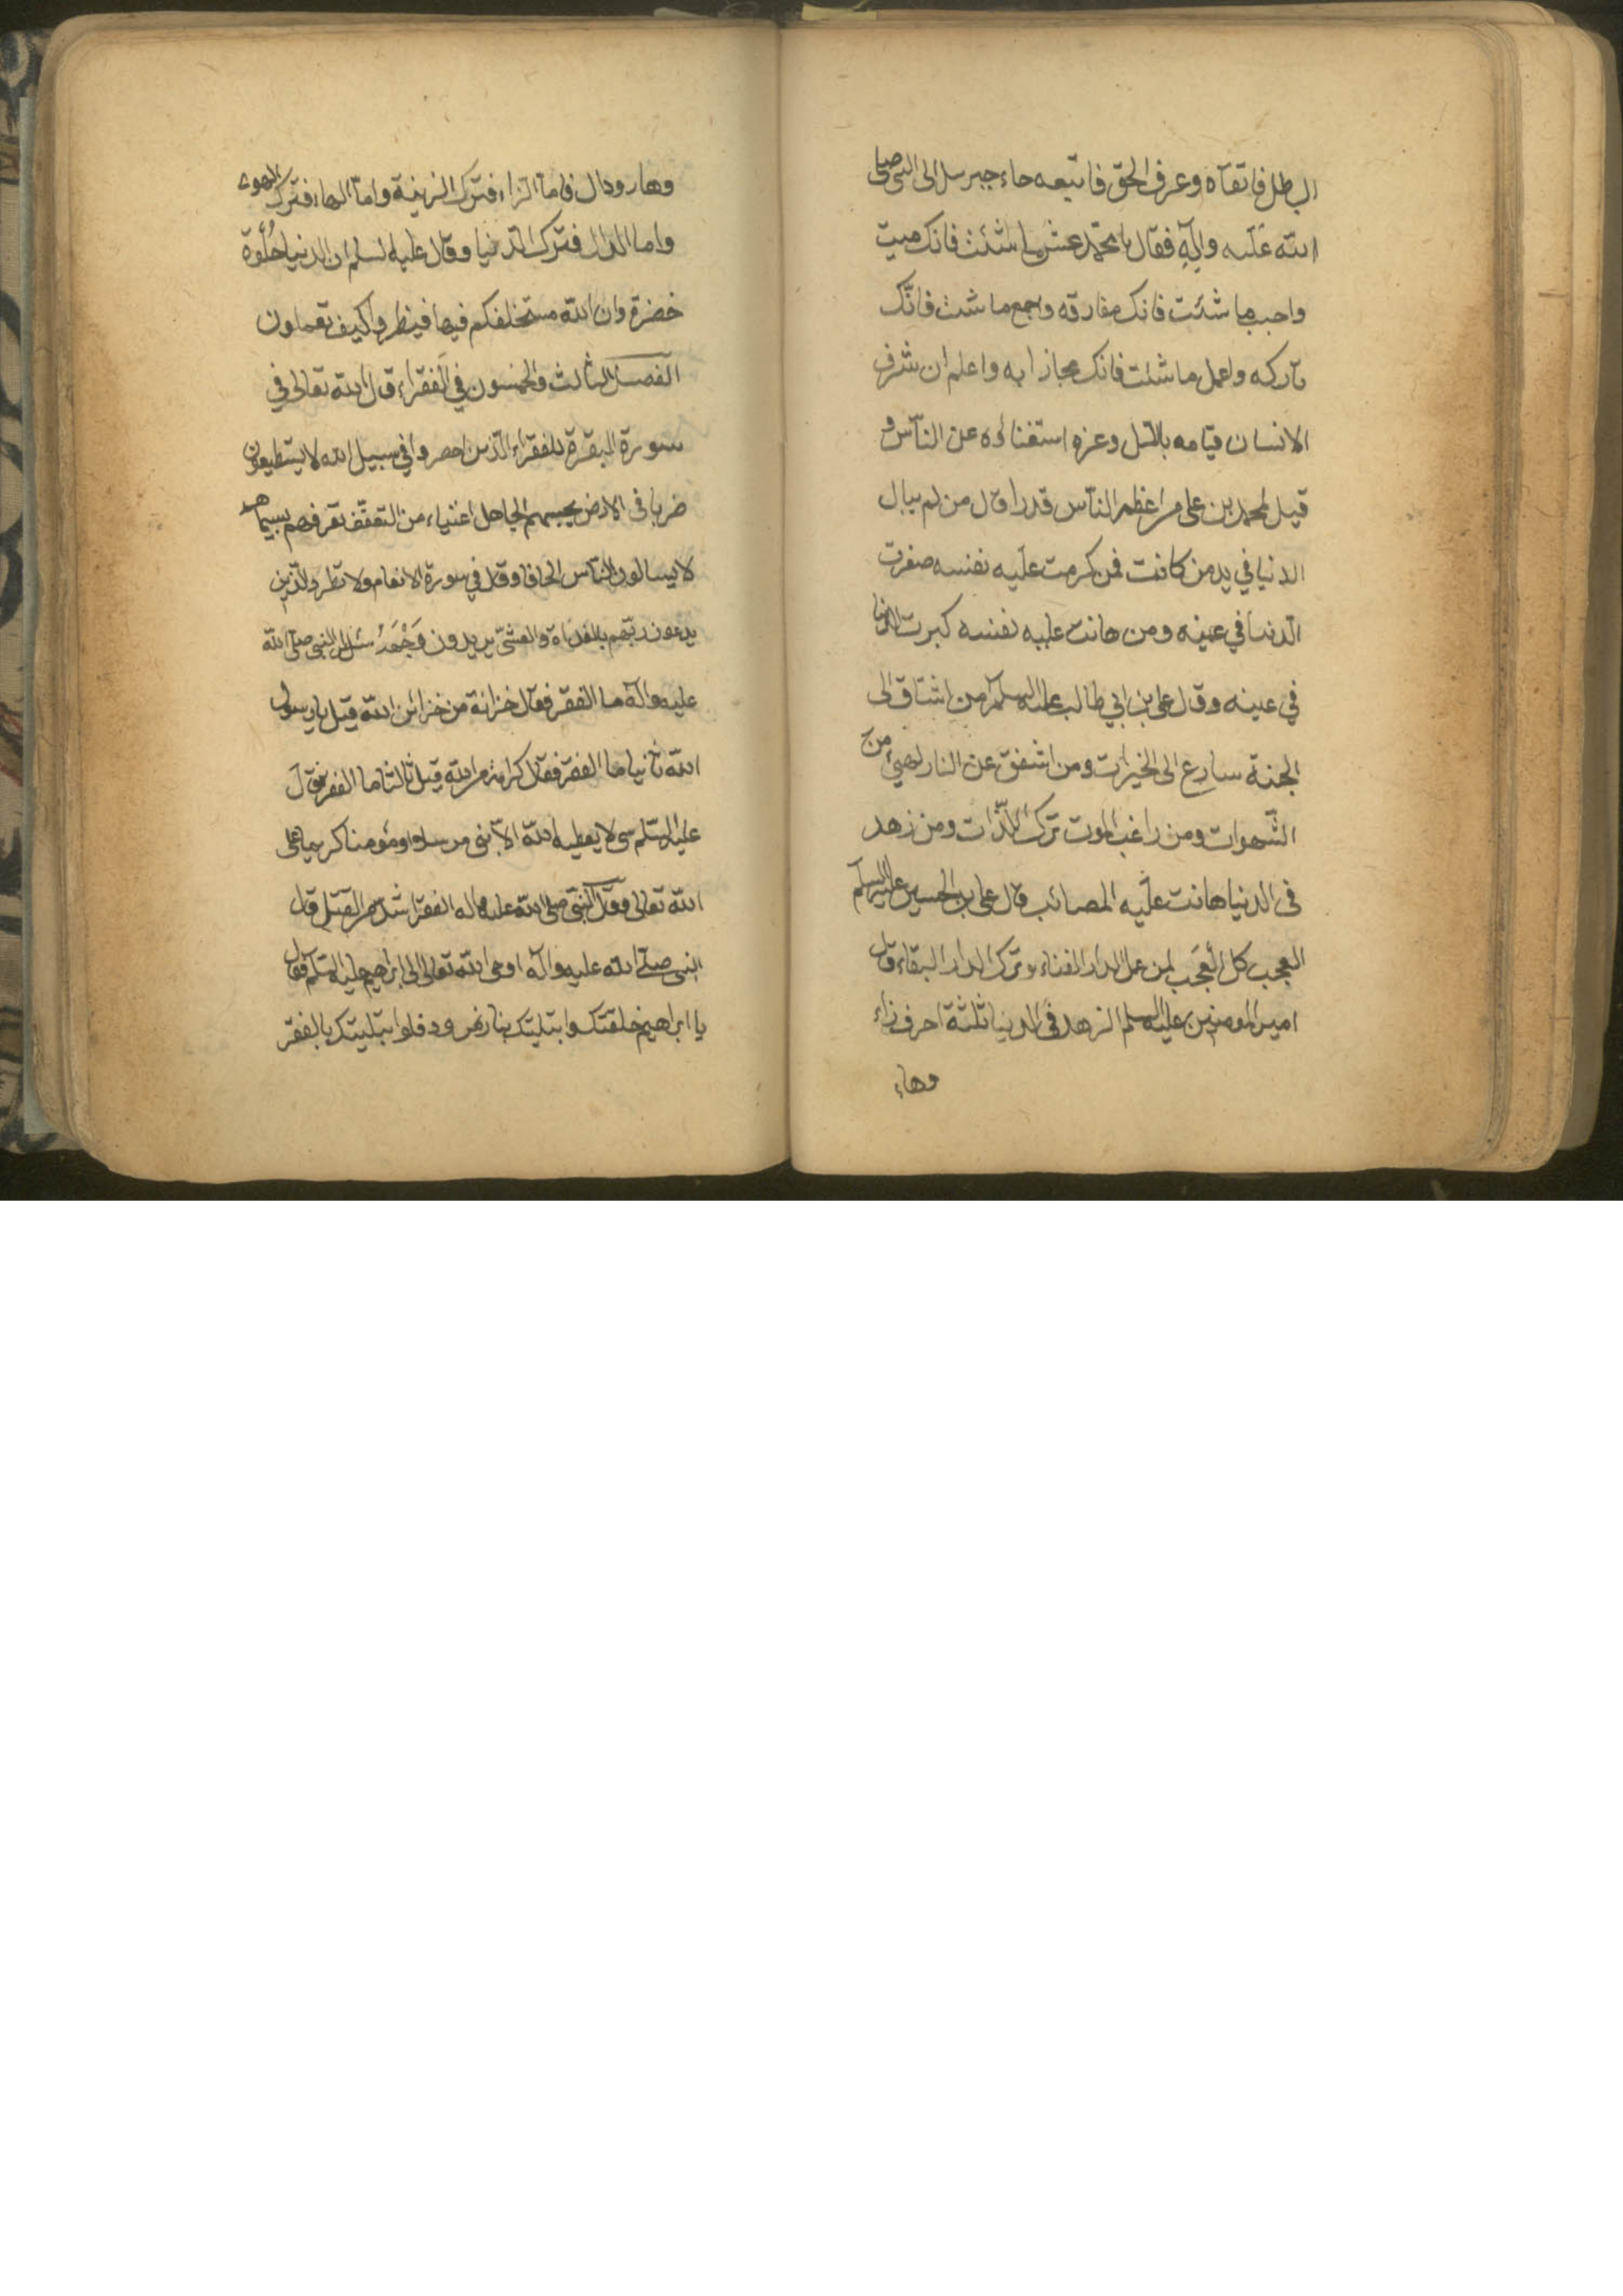 الباطل فاتقاه وعرف الحق فاتبعه جاء جبرسل الى النبي صلى
الله عليه وآله فقال يا محمد عش ما شئت فانك ميت
واحبب ما شئت فانك مفارقه واجمع ما شئت فانك
تاركه واعمل ما شئت فانك مجازا به واعلم ان شرف
الانسان قيامه بالليل وعزه استغناؤه عن الناس و
قيل لمحمد بن على من اعظم الناس قدرا قال من لم يبال
الدنيا في يد من كانت فمن كرمت عليه نفسه صغرت
الدنيا في عينه ومن هانت عليه نفسه كبرت الدنيا
في عينه وقال على بن ابي طالب عليه السلم من اشتاق الى
الجنة سارع الى الخيرات ومن اشفق عن النار لهى من
الشهوات ومن راغب الموت ترك اللذات ومن زهد
فى الدنيا هانت عليه المصائب قال على بن الحسين عليه السلم
العجب كل العجب لمن عمل لدار الفناء وترك لدار البقاء قال
امير المومنين عليه السلم الزهد فى الدنيا ثلثة احرف زاء
وهاء
وهاء ودال فاما الزاء فترك الزينة واما الهاء فترك الهوى
واما الدال فترك الدنيا وقال عليه السلم ان الدنيا حلوة
خضرة وان الله مستخلفكم فيها فينظروا كيف تعملون
الفصل الثالث والخمسون في الفقراء قال الله تعالى في
سورة البقرة للفقراء الذين احصروا في سبيل الله لا يستطيعون
ضربا فى الارض يحسبهم الجاهل اغنياء من التعفف تعرفهم بسيماهم
لا يسالون الناس الحافا وقال في سورة الانعام ولا تطرد الذين
يدعون ربهم بالغداة والعشي يريدون وجهه سئل النبي صلى الله
عليه وآله ما الفقر فقال خزانة من خزائن الله قيل يا رسول
الله ثانيا ما الفقر فقال كرامة من الله قيل ثالثا ما الفقر فقال
عليه السلم شى لا يعطيه الله الا نبى مرسل او مؤمنا كريما على
الله تعالى وقال النبي صلى الله عليه وآله الفقر اشد من القتل قال
النبي صلى الله عليه وآله اوحى الله تعالى الى ابراهيم عليه السلم فقال
يا ابراهيم خلقتك وابتليتك بنار نمرود فلو ابتليتك بالفقر